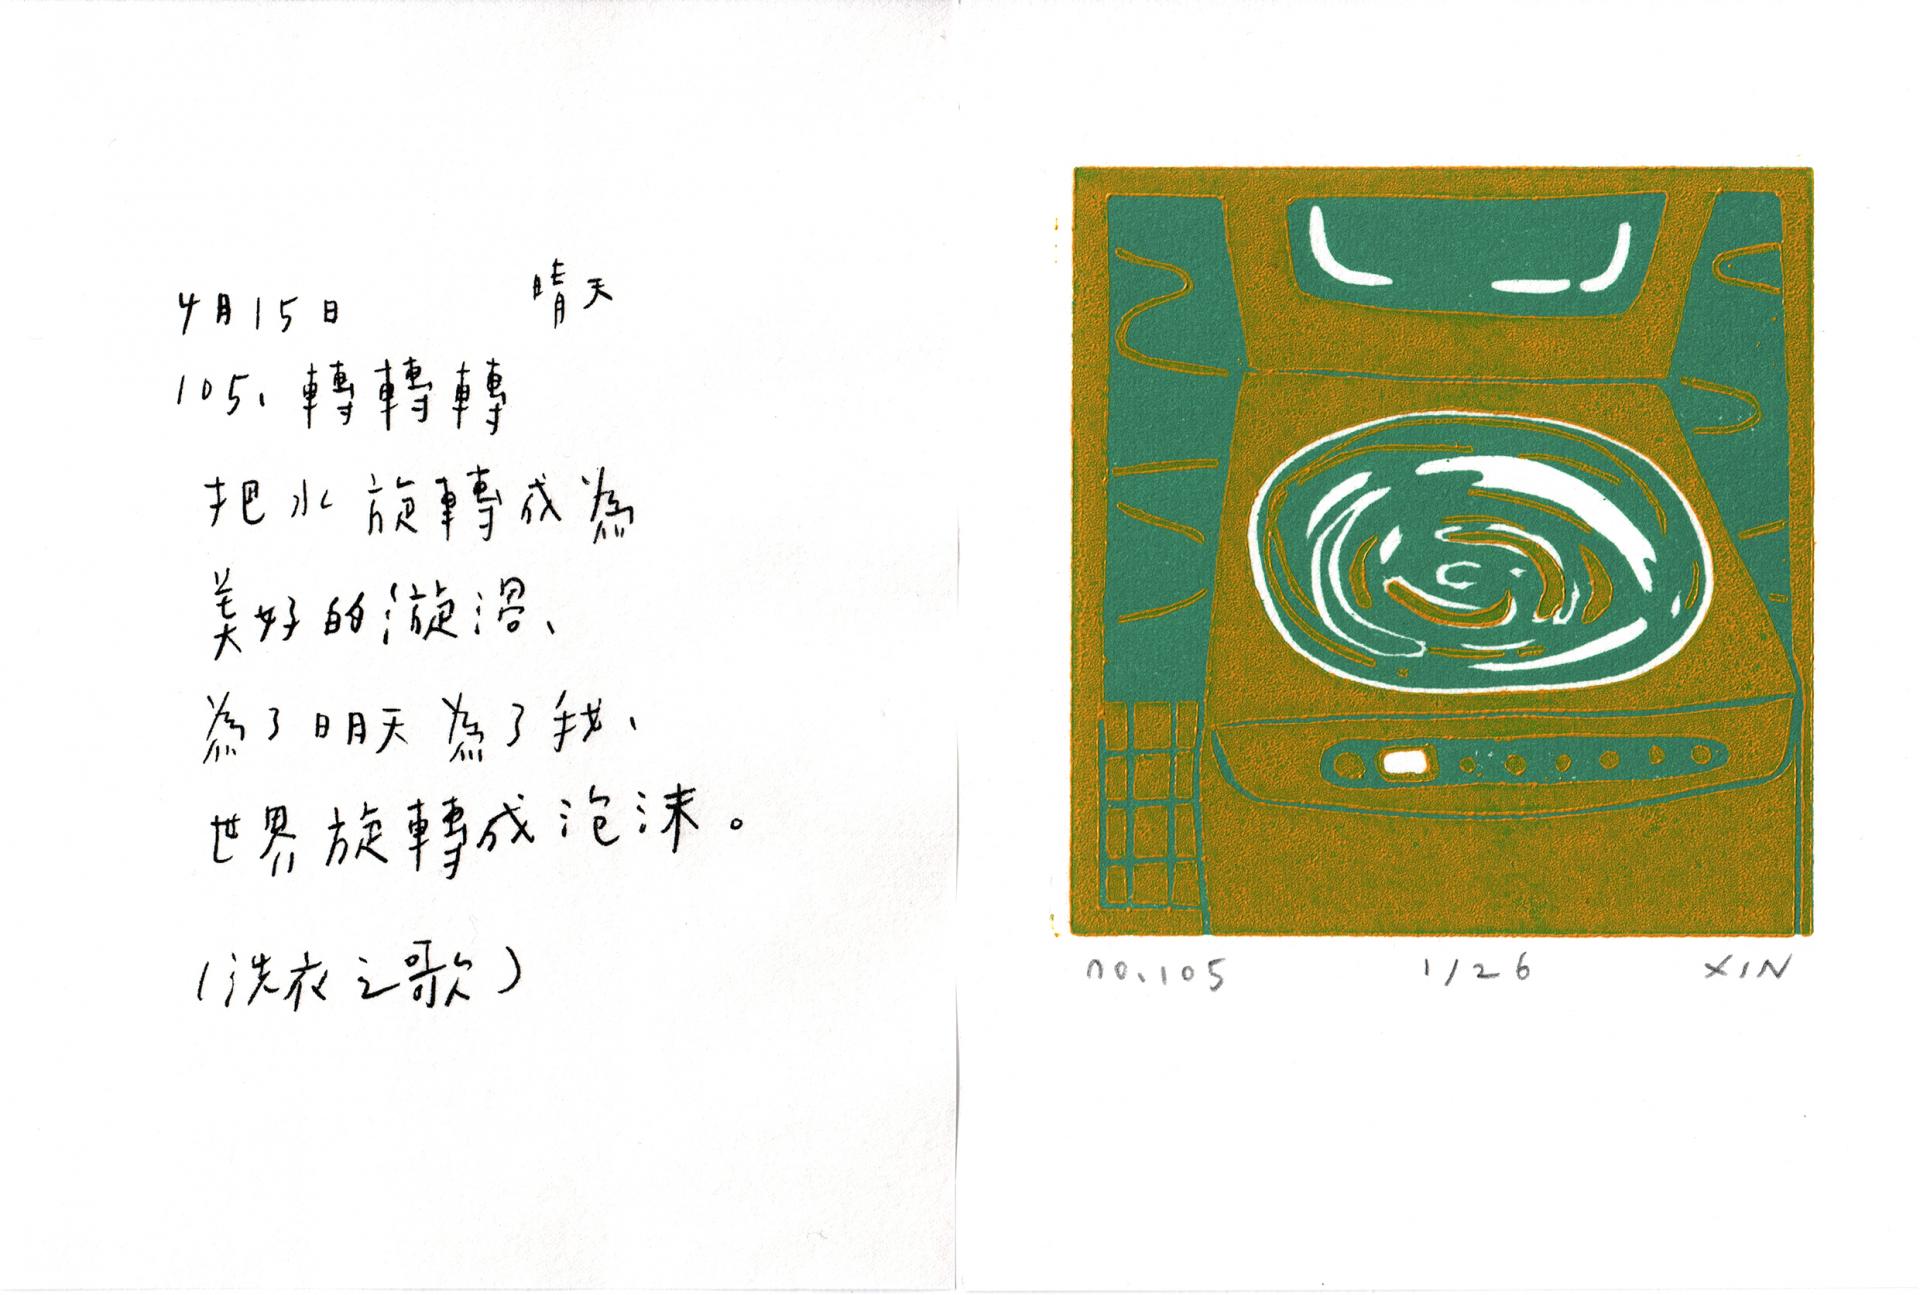 4月15日 晴天
105、轉轉轉
把水旋轉成為
美好的漩渦、
為了明天為了我、
世界旋轉成泡沫。
(洗衣之歌)
no.105 1/26 XIN